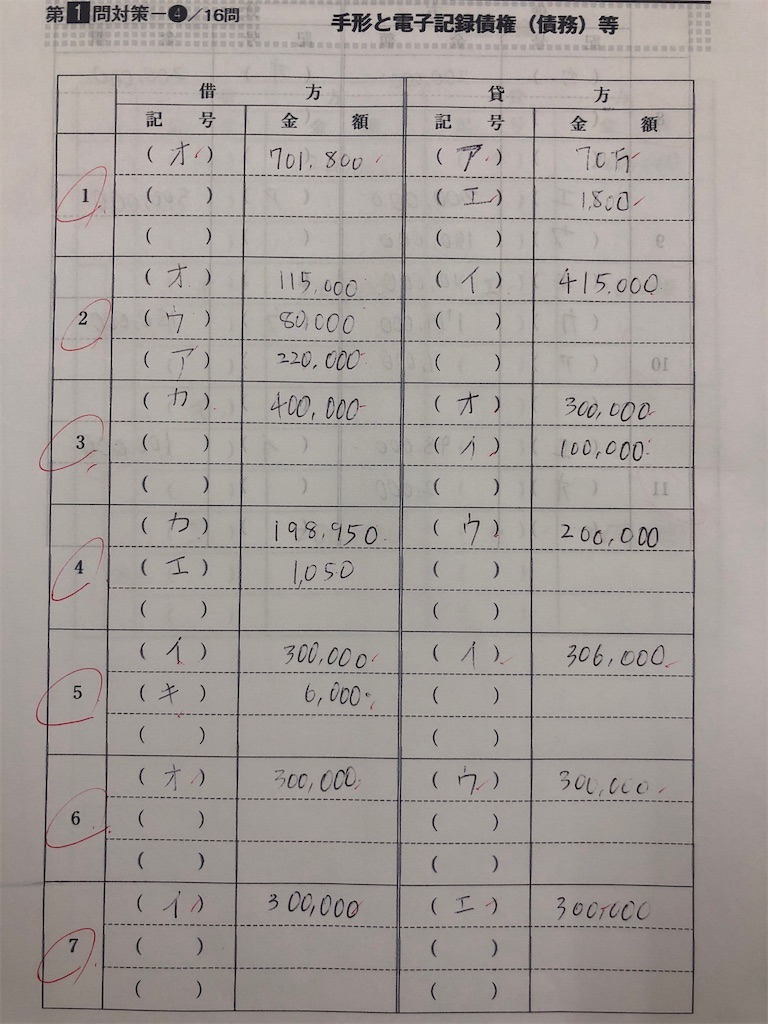 第1問対策－❹／16問 手形と電子記録債権（債務）等
借 方 貸 方
記 号 金 額 記 号 金 額
(オ) 701,800 (ア) 70万
1 ( ) (エ) 1,800
( ) ( )
(オ) 115,000 (イ) 415,000
2 (ウ) 80,000 ( )
(ア) 220,000 ( )
(カ) 400,000 (オ) 300,000
3 ( ) (イ) 100,000
( ) ( )
(カ) 198,950 (ウ) 200,000
4 (エ) 1,050 ( )
( ) ( )
(イ) 300,000 (イ) 306,000
5 (キ) 6,000 ( )
( ) ( )
(オ) 300,000 (ウ) 300,000
6 ( ) ( )
( ) ( )
(イ) 300,000 (エ) 300,000
7 ( ) ( )
( ) ( )